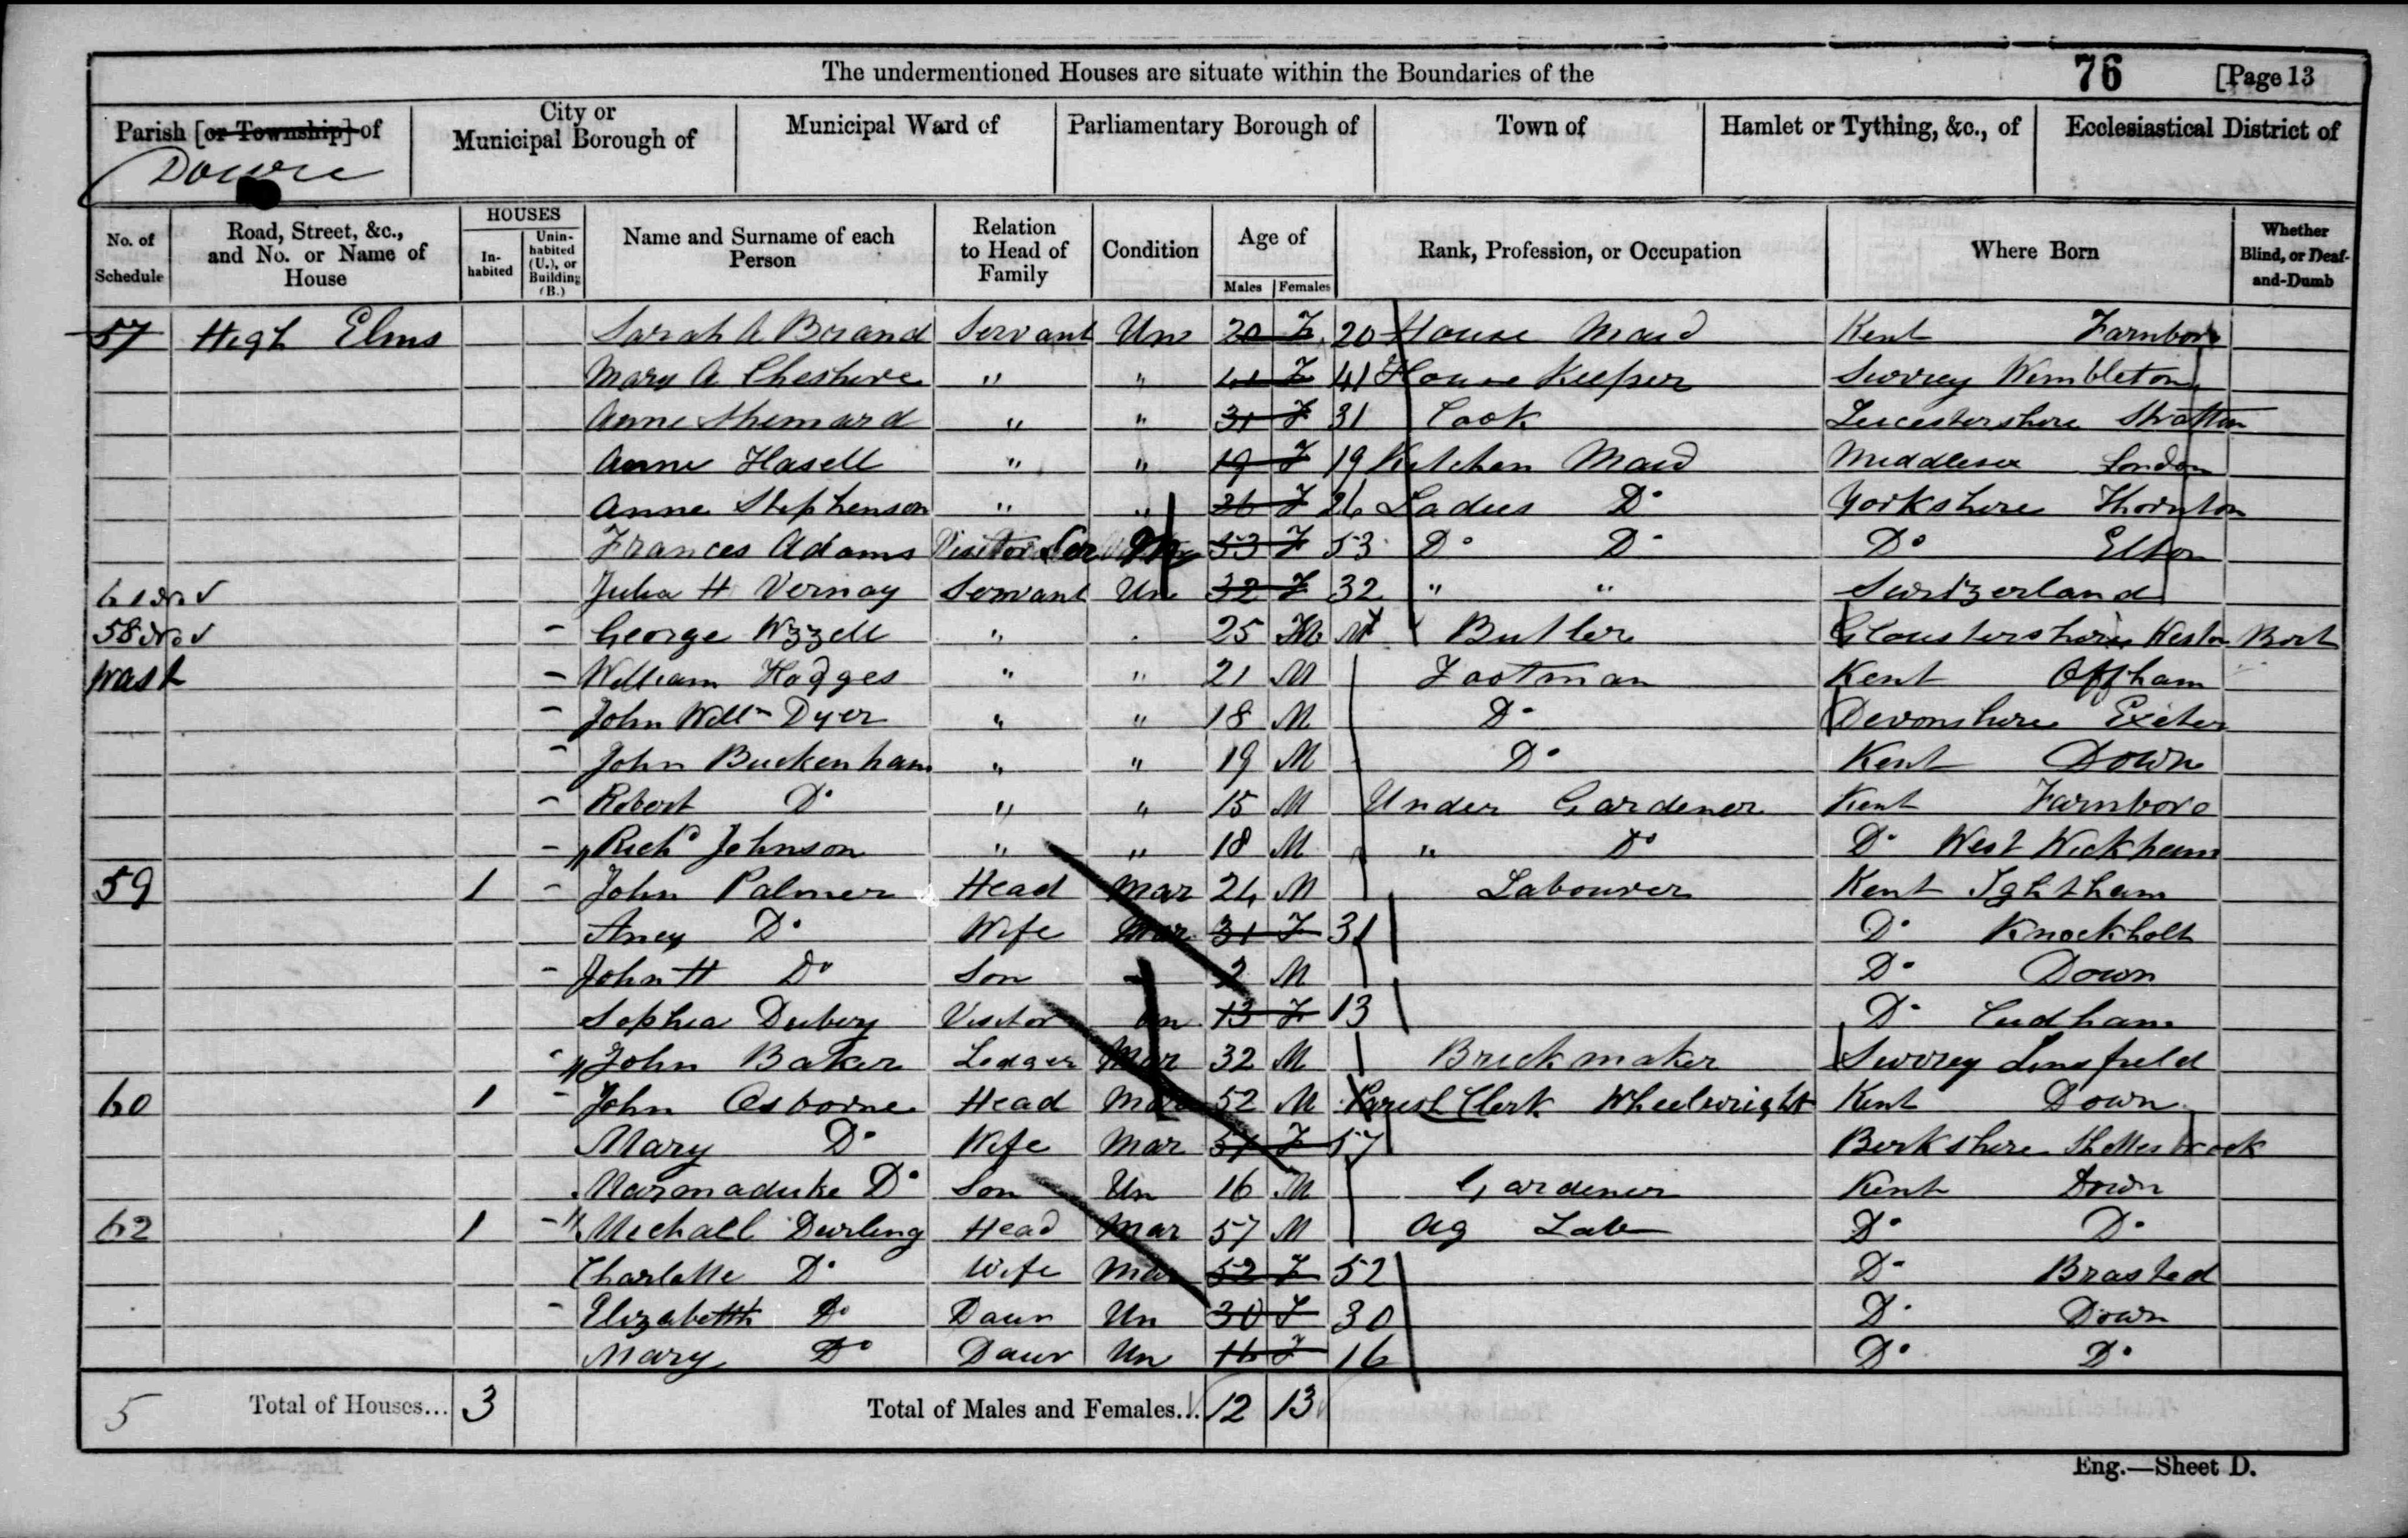 The undermentioned Houses are situate within the Boundaries of the 76 [Page 13
Parish [or Township] of City or Municipal Borough of Municipal Ward of Parliamentary Borough of Town of Hamlet or Tything, &c., of Ecclesiastical District of
Downe
No. of Schedule Road, Street, &c., and No. or Name of House HOUSES In-habited Unin-habited (U.), or Building (B.) Name and Surname of each Person Relation to Head of Family Condition Age of Males Females Rank, Profession, or Occupation Where Born Whether Blind, or Deaf-and-Dumb
57 High Elms Sarah A Brand Servant Un 20 F 20 House Maid Kent Farnboro
Mary A Cheshire " " 41 F 41 House Keeper Surrey Wimbleton
Anne " " 31 F 31 Cook Leicestershire Stratton
Anne Hasell " " 19 F 19 Kitchen Maid Middlesex London
Anne Stephenson " " 26 F 26 Ladies Do Yorkshire Thornton
Frances Adams Visitor Ser 53 F 53 Do Do Do Elton
Julia H Vernay Servant Un 32 F 32 " " Switzerland
George Wzzell " 25 M Butler Gloustershire Weston Birt
William Hodges " " 21 M Footman Kent Offham
John Willm Dyer " " 18 M Do Devonshire Exeter
John Buckenham " " 19 M Do Kent Down
Robert Do " " 15 M Under Gardener Kent Farnboro
Richd Johnson " " 18 M " Do Do West Wickham
59 1 John Palmer Head Mar 24 M Labourer Kent Ightham
Do Wife Mar 31 F 31 Do Knockholt
John H Do Son 2 M Do Down
Sophia Visitor Un 13 F 13 Do Cudham
John Baker Lodger Mar 32 M Brickmaker Surrey Limsfield
60 1 John Osborne Head Mar 52 M Parish Clerk Wheelwright Kent Down
Mary Do Wife Mar 57 F 57 Berkshire
Marmaduke Do Son Un 16 M Gardener Kent Down
62 1 Michall Durling Head Mar 57 M Ag Lab Do Do
Charlotte Do Wife Mar 52 F 52 Do Brasted
Elizabeth Do Daur Un 30 F 30 Do Down
Mary Do Daur Un 16 F 16 Do Do
5 Total of Houses... 3 Total of Males and Females... 12 13
Eng.—Sheet D.